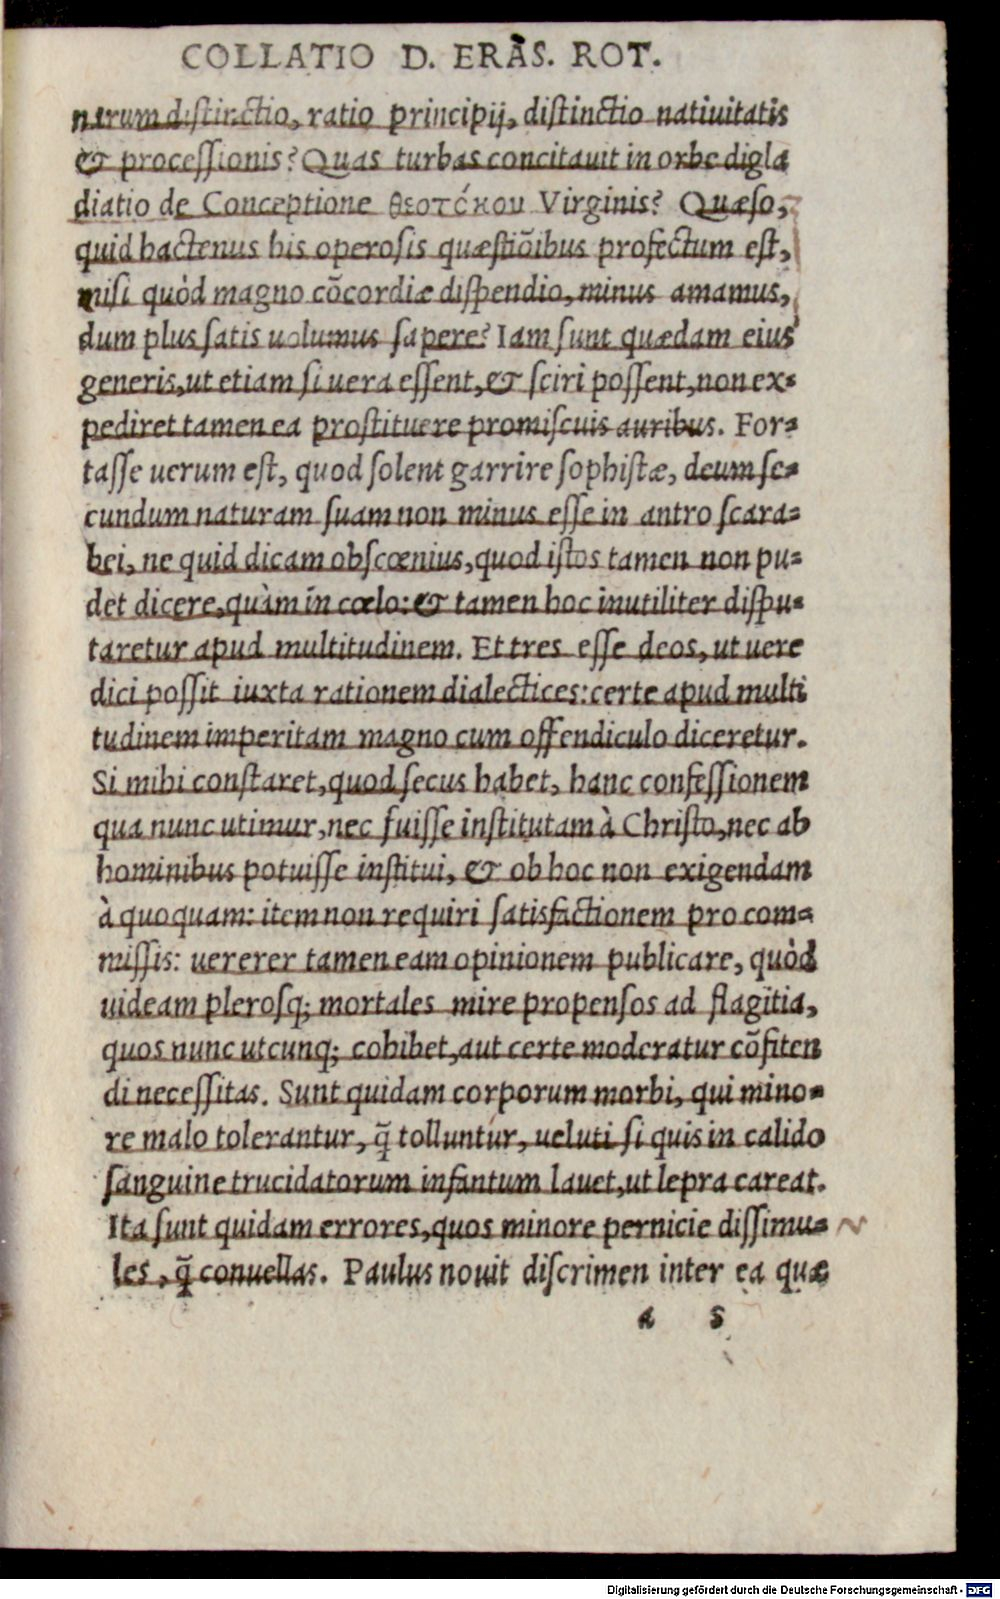 COLLATIO D. ERAS. ROT.
narum distinctio, ratio principij, distinctio natiuitatis
& processionis? Quas turbas concitauit in orbe digla
diatio de Conceptione θεοτόκου Virginis? Quæso,
quid hactenus his operosis quæstiõibus profectum est,
nisi quòd magno cõcordiæ dispendio, minus amamus,
dum plus satis uolumus sapere? Iam sunt quædam eius
generis, ut etiam si uera essent, & sciri possent, non ex-
pediret tamen ea prostituere promiscuis auribus. For-
tasse uerum est, quod solent garrire sophistæ, deum se-
cundum naturam suam non minus esse in antro scara-
bei, ne quid dicam obscœnius, quod istos tamen non pu-
det dicere, quàm in cœlo: & tamen hoc inutiliter dispu-
taretur apud multitudinem. Et tres esse deos, ut uere
dici possit iuxta rationem dialectices: certe apud multi
tudinem imperitam magno cum offendiculo diceretur.
Si mihi constaret, quod secus habet, hanc confessionem
qua nunc utimur, nec fuisse institutam à Christo, nec ab
hominibus potuisse institui, & ob hoc non exigendam
à quoquam: item non requiri satisfactionem pro com-
missis: uererer tamen eam opinionem publicare, quòd
uideam plerosq; mortales mire propensos ad flagitia,
quos nunc utcunq; cohibet, aut certe moderatur cõfiten
di necessitas. Sunt quidam corporum morbi, qui mino-
re malo tolerantur, q̃ tolluntur, ueluti si quis in calido
sanguine trucidatorum infantum lauet, ut lepra careat.
Ita sunt quidam errores, quos minore pernicie dissimu-
les, q̃ conuellas. Paulus nouit discrimen inter ea quæ
a 5
Digitalisierung gefördert durch die Deutsche Forschungsgemeinschaft - DFG